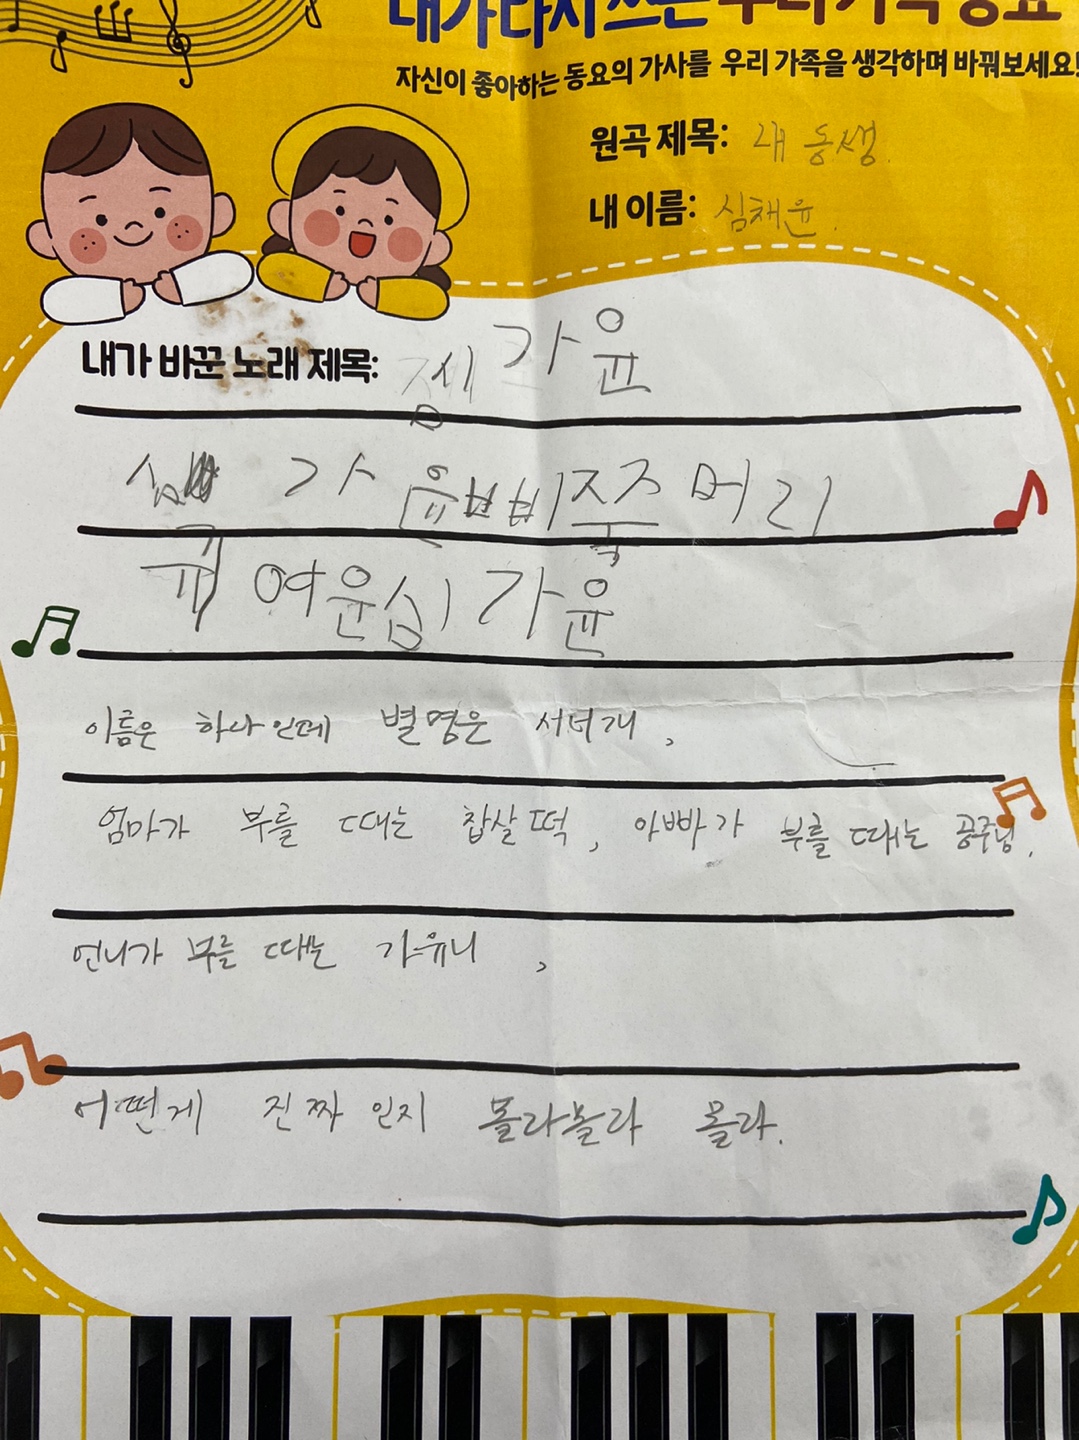 내가 다시 쓰는 우리 가족 동요
자신이 좋아하는 동요의 가사를 우리 가족을 생각하며 바꿔보세요!
원곡 제목: 내 동생.
내 이름: 심채윤.
내가 바꾼 노래 제목: 심 가윤
심 가윤 삐쭉머리
귀여운심 가윤
이름은 하나인데 별명은 서너개,
엄마가 부를 때는 찹살떡, 아빠가 부를 때는 공주님.
언니가 부를 때는 가유니,
어떤게 진짜인지 몰라몰라 몰라.